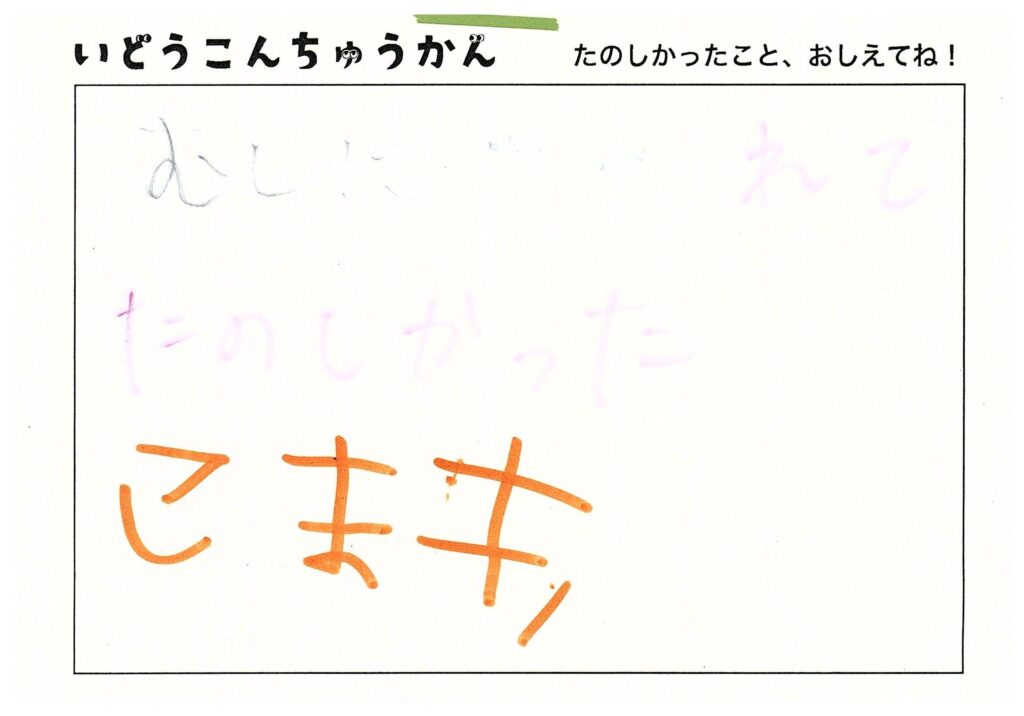 いどうこんちゅうかん
たのしかったこと、おしえてね！
むしに れて
たのしかった
こまき